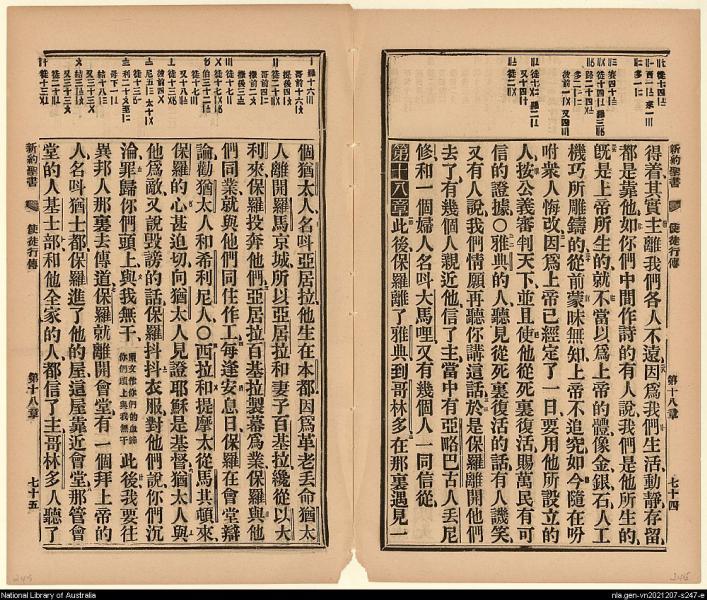 得着其實主離我們各人不遠因爲我們生活動靜存留
都是靠他如你們中間作詩的有人說我們是他所生的
旣是上帝所生的就不當以爲上帝的體像金銀石人工
機巧所雕鑄的從前蒙昧無知上帝不追究如今隨在吩
咐衆人悔改因爲上帝已經定了一日要用他所設立的
人按公義審判天下並且使他從死裏復活賜萬民有可
信的證據○雅典的人聽見從死裏復活的話有人譏笑
又有人說我們情願再聽你講這話於是保羅離開他們
去了有幾個人親近他信了主當中有亞略巴古人丟尼
修和一個婦人名呌大馬哩又有幾個人一同信從
第十八章此後保羅離了雅典到哥林多在那裏遇見一
新約聖書 使徒行傳 第十八章 七十四
個猶太人名呌亞居拉他生在本都因爲革老丟命猶太
人離開羅馬京城所以亞居拉和妻子百基拉纔從以大
利來保羅投奔他們亞居拉百基拉製幕爲業保羅與他
們同業就與他們同住作工每逢安息日保羅在會堂辯
論勸猶太人和希利尼人○西拉和提摩太從馬其頓來
保羅的心甚迫切向猶太人見證耶穌是基督猶太人與
他爲敵又說毀謗的話保羅抖抖衣服對他們說你們沉
淪罪歸你們頭上與我無干 原文作你們的血歸你們頭上與我無干 此後我要往
異邦人那裏去傳道保羅就離開會堂有一個拜上帝的
人名呌猶士都保羅進了他的屋這屋靠近會堂那管會
堂的人基士部和他全家的人都信了主哥林多人聽了
新約聖書 使徒行傳 第十八章 七十五
National Library of Australia
nla.gen-vn2021207-s247-e